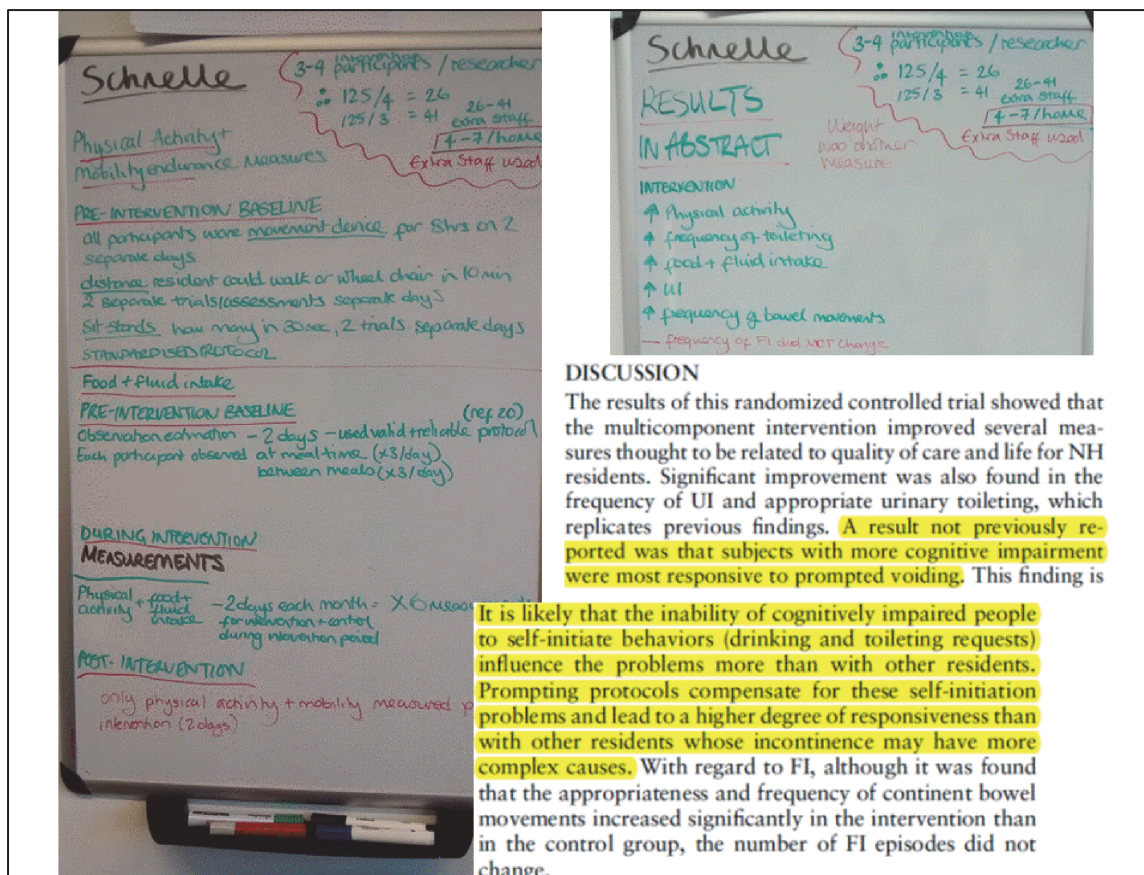 Schnelle
3-4 intervention participants / researcher
∴ 125/4 = 26
125/3 = 41
26-41
extra staff
4-7/home
Extra Staff used
Physical Activity +
Mobility endurance measures
PRE-INTERVENTION BASELINE
all participants wore movement device for 8hrs on 2
separate days
distance resident could walk or wheel chair in 10 min
2 separate trials/assessments separate days
Sit-stands how many in 30sec, 2 trials separate days
STANDARDISED PROTOCOL
Food + fluid intake
PRE-INTERVENTION BASELINE (ref 20)
Observation estimation - 2 days - used valid + reliable protocol
Each participant observed at meal time (x3/day)
between meals (x3/day)
DURING INTERVENTION
MEASUREMENTS
Physical activity + food + fluid intake - 2 days each month = x6
for intervention + control
during intervention period
POST-INTERVENTION
only physical activity + mobility measured
intervention (2 days)
Schnelle
3-4 intervention participants / researcher
∴ 125/4 = 26
125/3 = 41
26-41
extra staff
4-7/home
Extra Staff used
RESULTS
IN ABSTRACT
Weight
was another
measure
INTERVENTION
↑ Physical activity
↑ frequency of toileting
↑ food + fluid intake
↑ UI
↑ frequency of bowel movements
— frequency of FI did NOT change
DISCUSSION
The results of this randomized controlled trial showed that
the multicomponent intervention improved several mea-
sures thought to be related to quality of care and life for NH
residents. Significant improvement was also found in the
frequency of UI and appropriate urinary toileting, which
replicates previous findings. A result not previously re-
ported was that subjects with more cognitive impairment
were most responsive to prompted voiding. This finding is
It is likely that the inability of cognitively impaired people
to self-initiate behaviors (drinking and toileting requests)
influence the problems more than with other residents.
Prompting protocols compensate for these self-initiation
problems and lead to a higher degree of responsiveness than
with other residents whose incontinence may have more
complex causes. With regard to FI, although it was found
that the appropriateness and frequency of continent bowel
movements increased significantly in the intervention than
in the control group, the number of FI episodes did not
change.